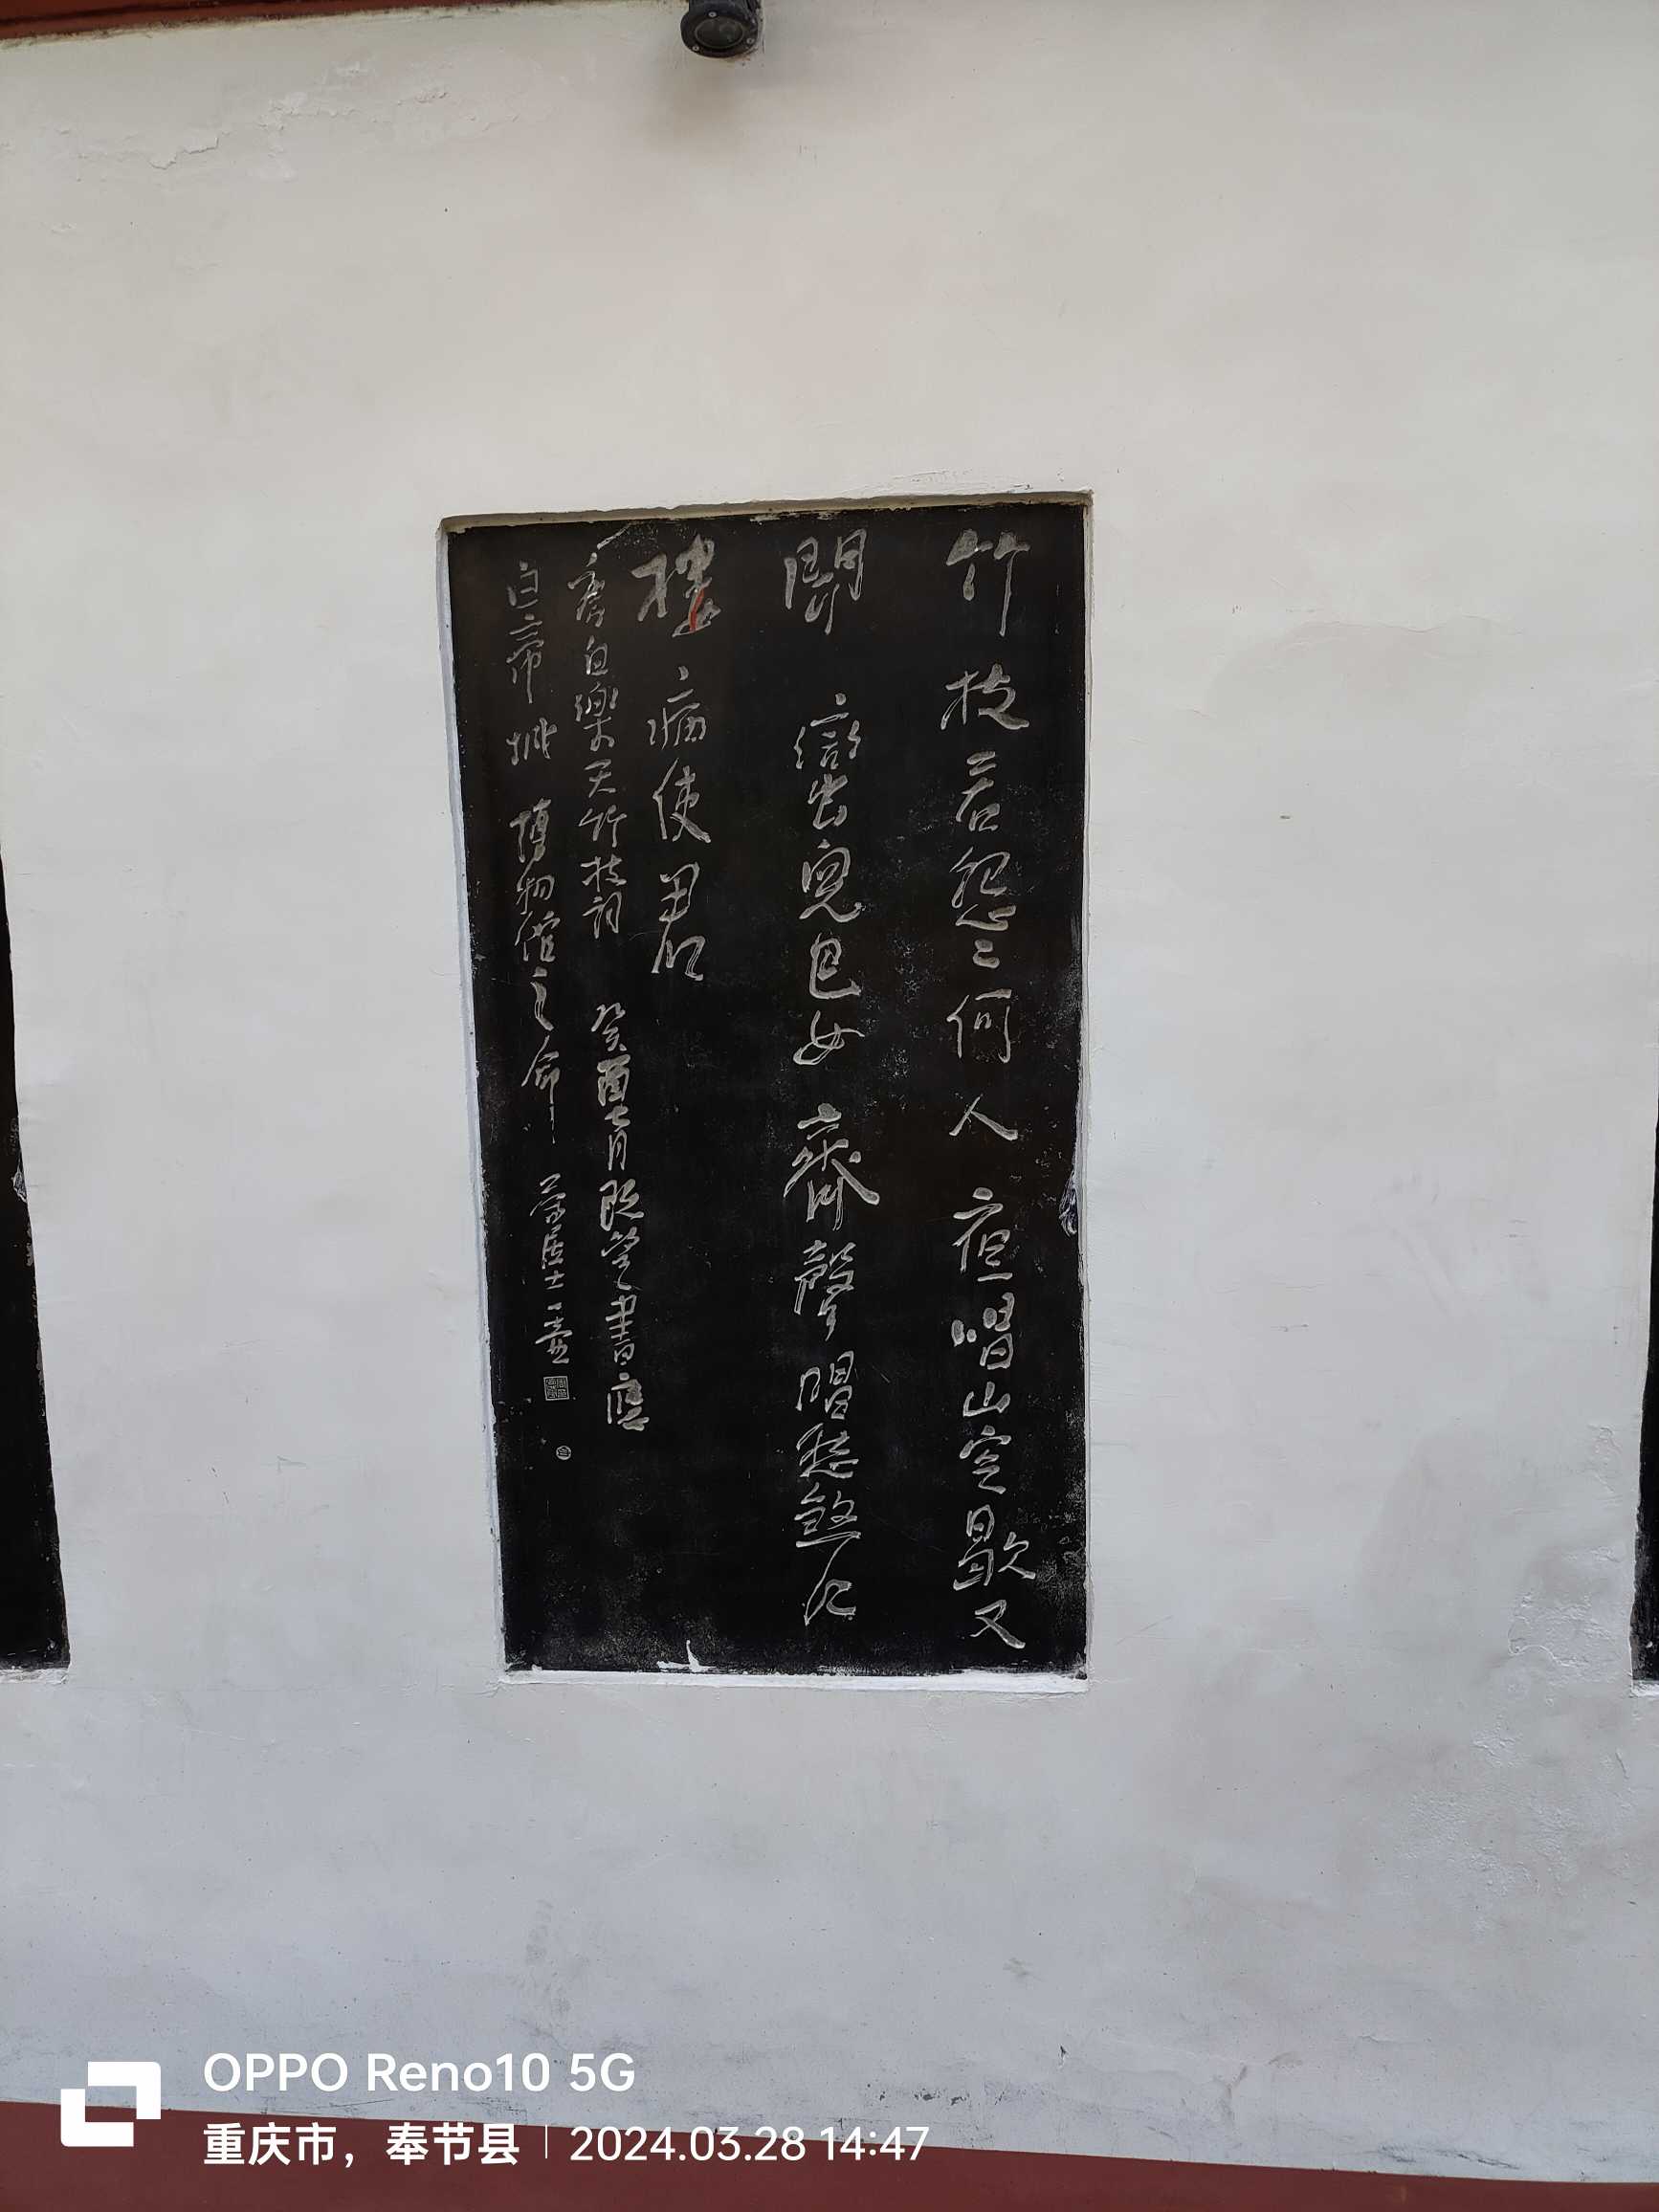 竹枝苦怨〻何人夜唱山空歇又
聞蠻兒巴女齊聲唱愁煞江
樓病使君
唐白樂天竹枝詞 癸酉七月既望書應
白帝城博物館之命 居士
OPPO Reno10 5G
重庆市，奉节县 | 2024.03.28 14:47